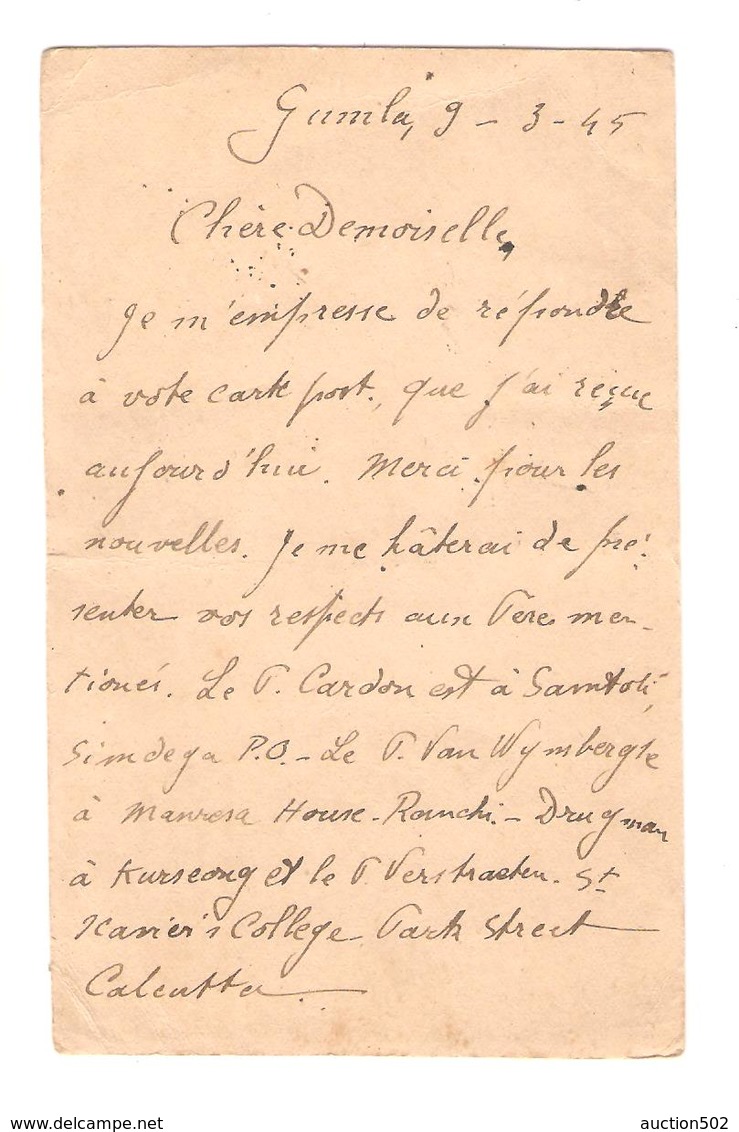 Gumla, 9 - 3 - 45
Chère Demoiselle,
Je m'empresse de répondre
à vote carte post., que j'ai reçue
aujourd'hui. Merci pour les
nouvelles. Je me hâterai de pré-
senter vos respects aux Peres men-
tionés. Le P. Cardon est à Samtoli,
Simdega P.O. - Le P. Van Wymbergh
à Manresa House - Ranchi. - Drugman
à Kurseong et le P. Verstraeten. St
Xavier's College Park Street
Calcutta.
auction502